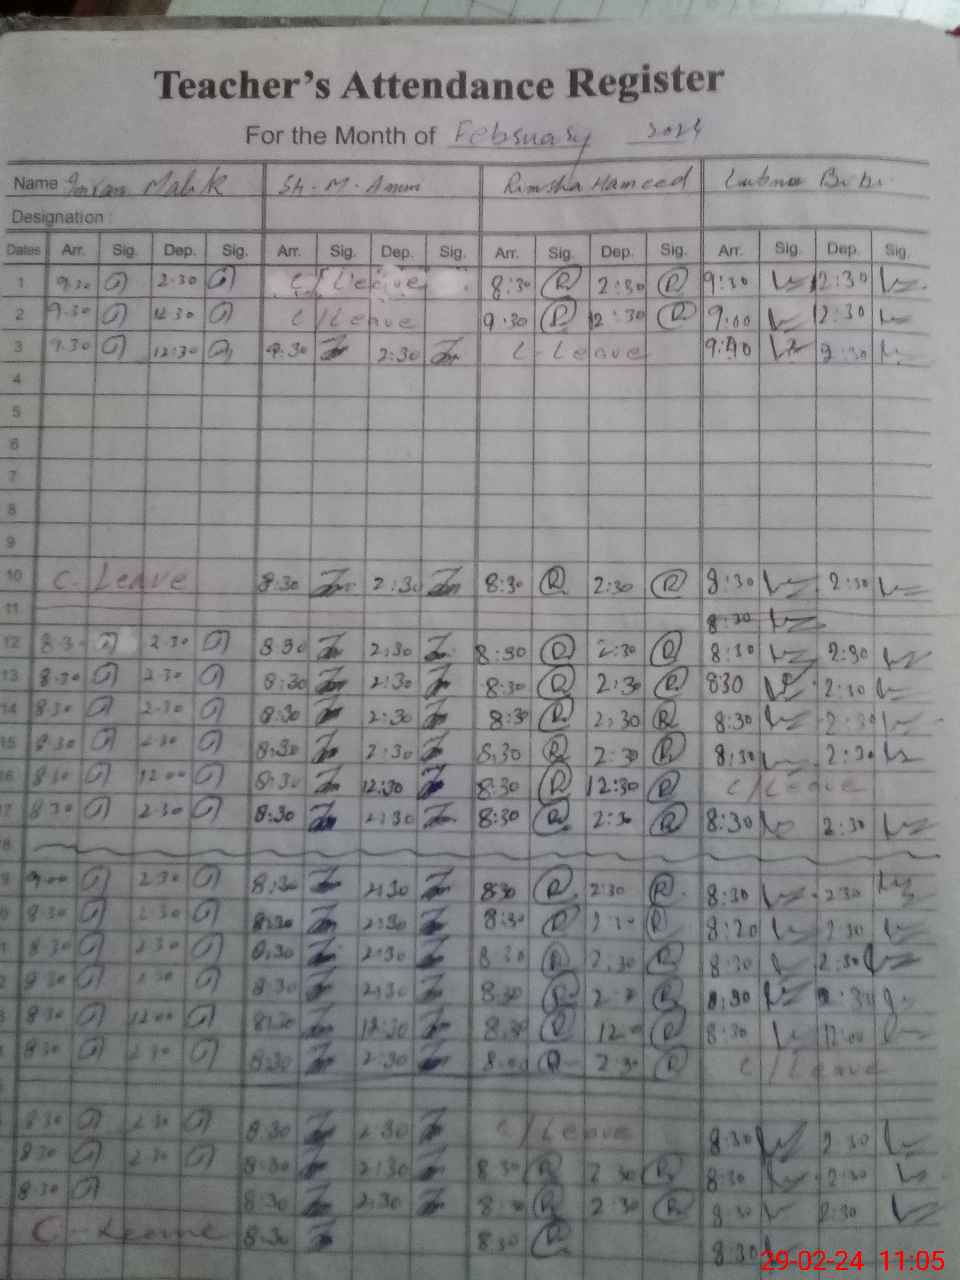 Teacher's Attendance Register
For the Month of February 2024
Name Imran Malik Sh. M. Amin Rimsha Hameed Lubna Bibi
Designation :
Dates Arr. Sig. Dep. Sig. Arr. Sig. Dep. Sig. Arr. Sig. Dep. Sig. Arr. Sig. Dep. Sig.
1 9.30 2.30 C/Leave 8:30 R 2:30 R 9:30 2:30
2 9.30 12.30 C/Leave 9:30 R 12:30 R 9:00 12:30
3 9.30 12:30 9.30 2:30 C-Leave 9:40
4
5
6
7
8
9
10 C-Leave 8:30 2:30 8:30 R 2:30 R 8:30 2:30
11 8:30
12 8:30 2.30 8:30 2:30 8:30 R 2:30 R 8:30 2:30
13 8.30 2.30 8:30 2:30 8:30 R 2:30 R 830 2:30
14 8.30 2.30 8:30 2:30 8:30 R 2:30 R 8:30 2:30
15 8.30 2.30 8:30 2:30 8:30 R 2:30 R 8:30 2:30
16 8.30 12.00 8:30 12:30 8:30 R 12:30 R C/Leave
17 8.30 2.30 8:30 2:30 8:30 R 2:30 R 8:30 2:30
9.00 2.30 8:30 2:30 830 R 2:30 R 8:30 2:30
8.30 2.30 8:30 2:30 8:30 R 2:30 R 2:30
8.30 2.30 8:30 2:30 8:30 R 2:30 R 8:30 2:30
8.30 2.30 8:30 2:30 8:30 R R 8:30
8.30 12.00 8:30 12:30 8:30 R R 8:30 12:00
8.30 2.30 8:30 2:30 R 2:30 R C/Leave
8.30 2.30 8:30 2:30 C/Leave 8:30 2:30
8.30 2.30 8:30 2:30 8:30 R 2:30 R 8:30 2:30
8.30 8:30 2:30 8:30 R 2:30 R 8:30 2:30
C-Leave 8:30 8:30 R 8:30
29-02-24 11:05